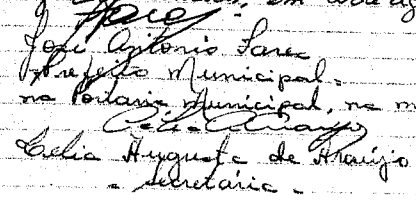 José Antonio
Prefeito Municipal=
na Portaria Municipal, na m
Celia Araujo
Celia Augusta de Araújo
- Secretária -